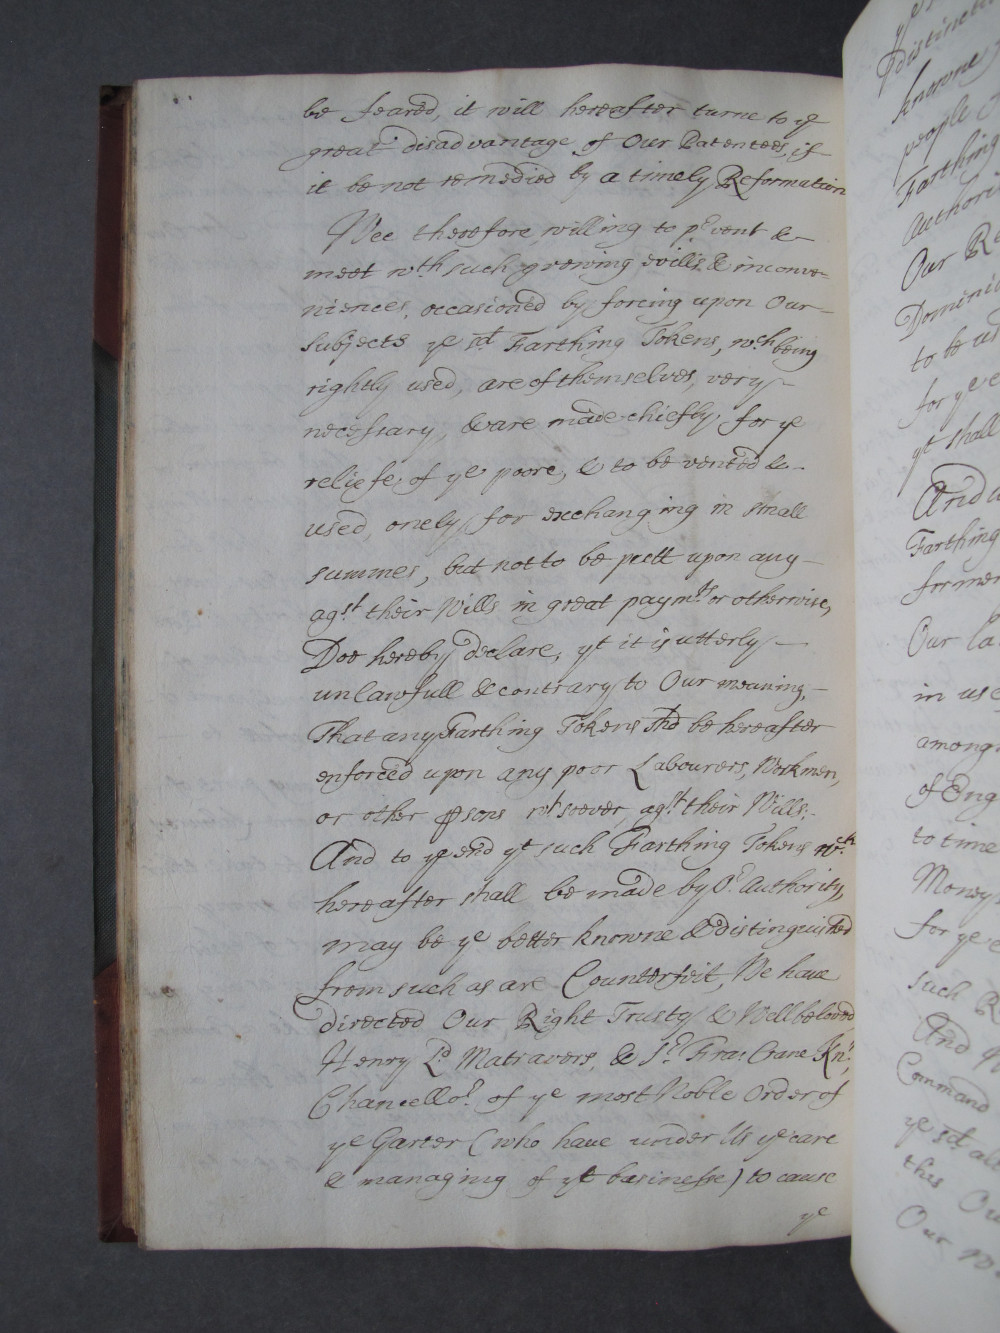 be feared, it will hereafter turne to ye
great disadvantage of Our Patentees, if
it be not remedied by a timely Reformation
Wee therefore willing to pr vent &
meet wth such growing evills & inconve-
niences, occasioned by forcing upon Our
Subjects ye sd Farthing Tokens, wch being
rightly used, are of themselves, very
necessary, & are made chiefly for ye
reliefe of ye poore, & to be vented &
used, onely for exchanging in small
summes, but not to be putt upon any
agst their Wills in great paymts or otherwise,
Doe hereby declare, yt it is utterly
unlawfull & contrary to Our meaning,
That any Farthing Tokens shd be hereafter
enforced upon any poor Labourers, Workmen,
or other psons wtsoever, agst their Wills:
And to ye end yt such Farthing Tokens wch
hereafter shall be made by Or Authority,
may be ye better knowne & distinguished
from such as are Counterfeit, We have
directed Our Right Trusty & Wellbeloved
Henry Ld Matravers, & Sr Fra: Crane Knt,
Chancellor of ye most Noble Order of
ye Garter (who have under Us ye care
& managing of yt businesse) to cause
ye
distincti
knowne
people
Farthing
Authori
Our Re
Dominio
to be us
for ye
yt shall
And
Farthing
former
Our la
in use
amongs
of Eng
to time
Money
for ye
such R
And
Command
ye sd all
this Ou
Our